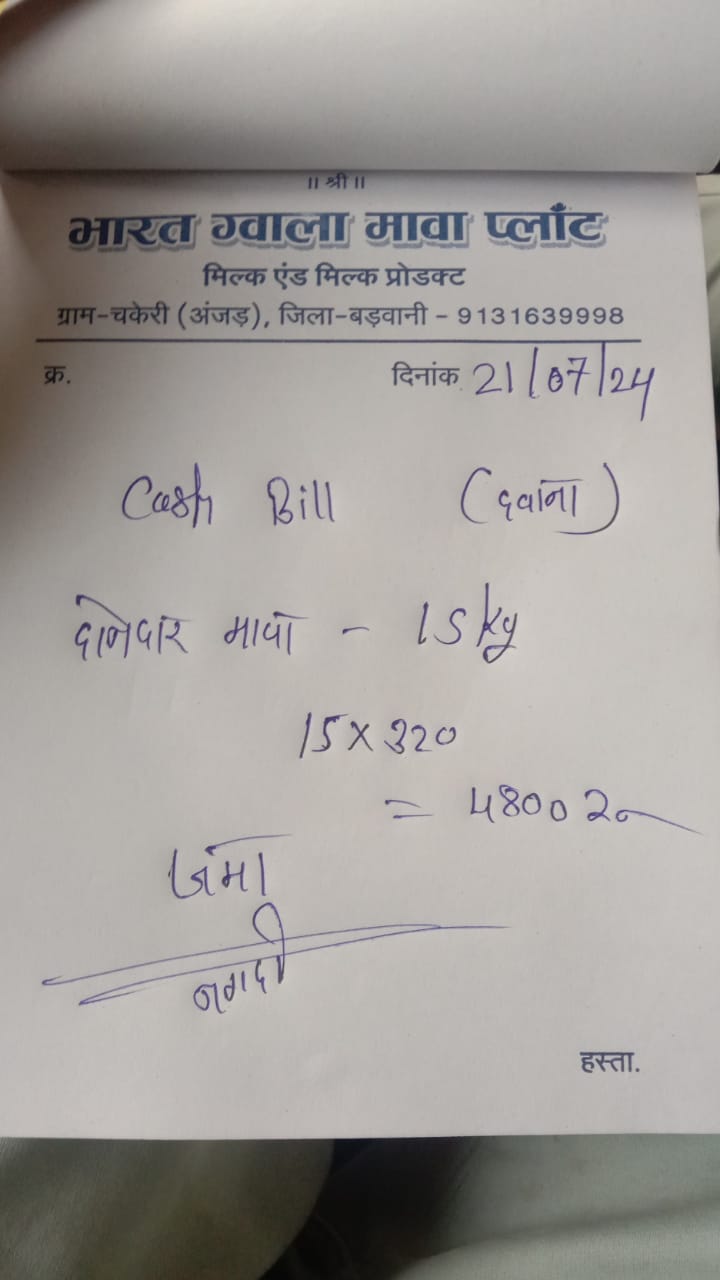 ॥ श्री ॥
भारत ग्वाला मावा प्लाँट
मिल्क एंड मिल्क प्रोडक्ट
ग्राम-चकेरी (अंजड़), जिला-बड़वानी - 9131639998
क्र. दिनांक 21/07/24
Cash Bill (दवाना)
दानेदार मावा - 15 kg
15 x 320
= 4800 रु
जमा
नगदी
हस्ता.